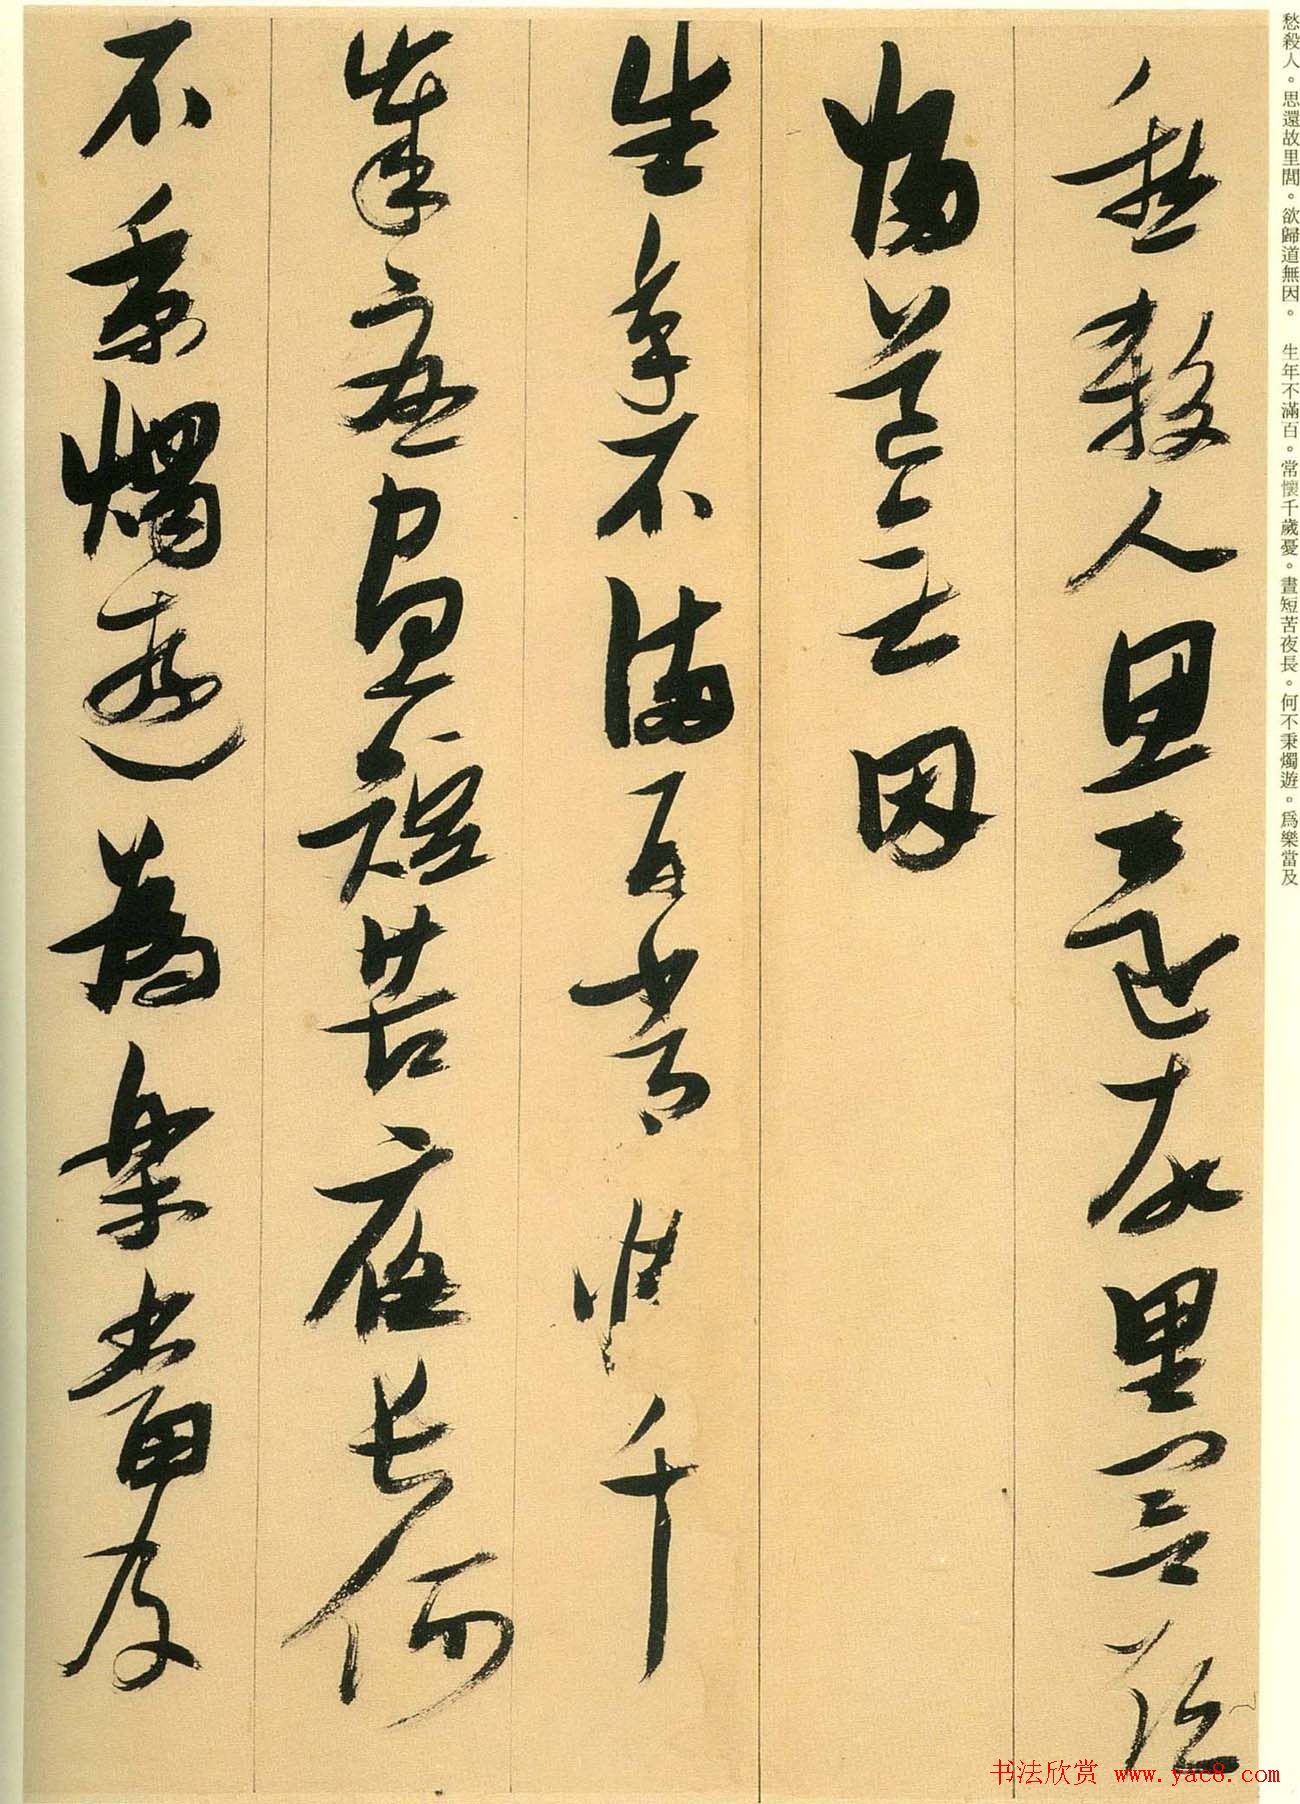 愁殺人。思還故里閭。欲歸道無因。　生年不滿百。常懷千歲憂。晝短苦夜長。何不秉燭遊。爲樂當及
愁殺人思還故里閭欲
歸道無因
生年不滿百常懷千
歲憂晝短苦夜長何
不秉燭遊為樂當及
书法欣赏 www.yac8.com